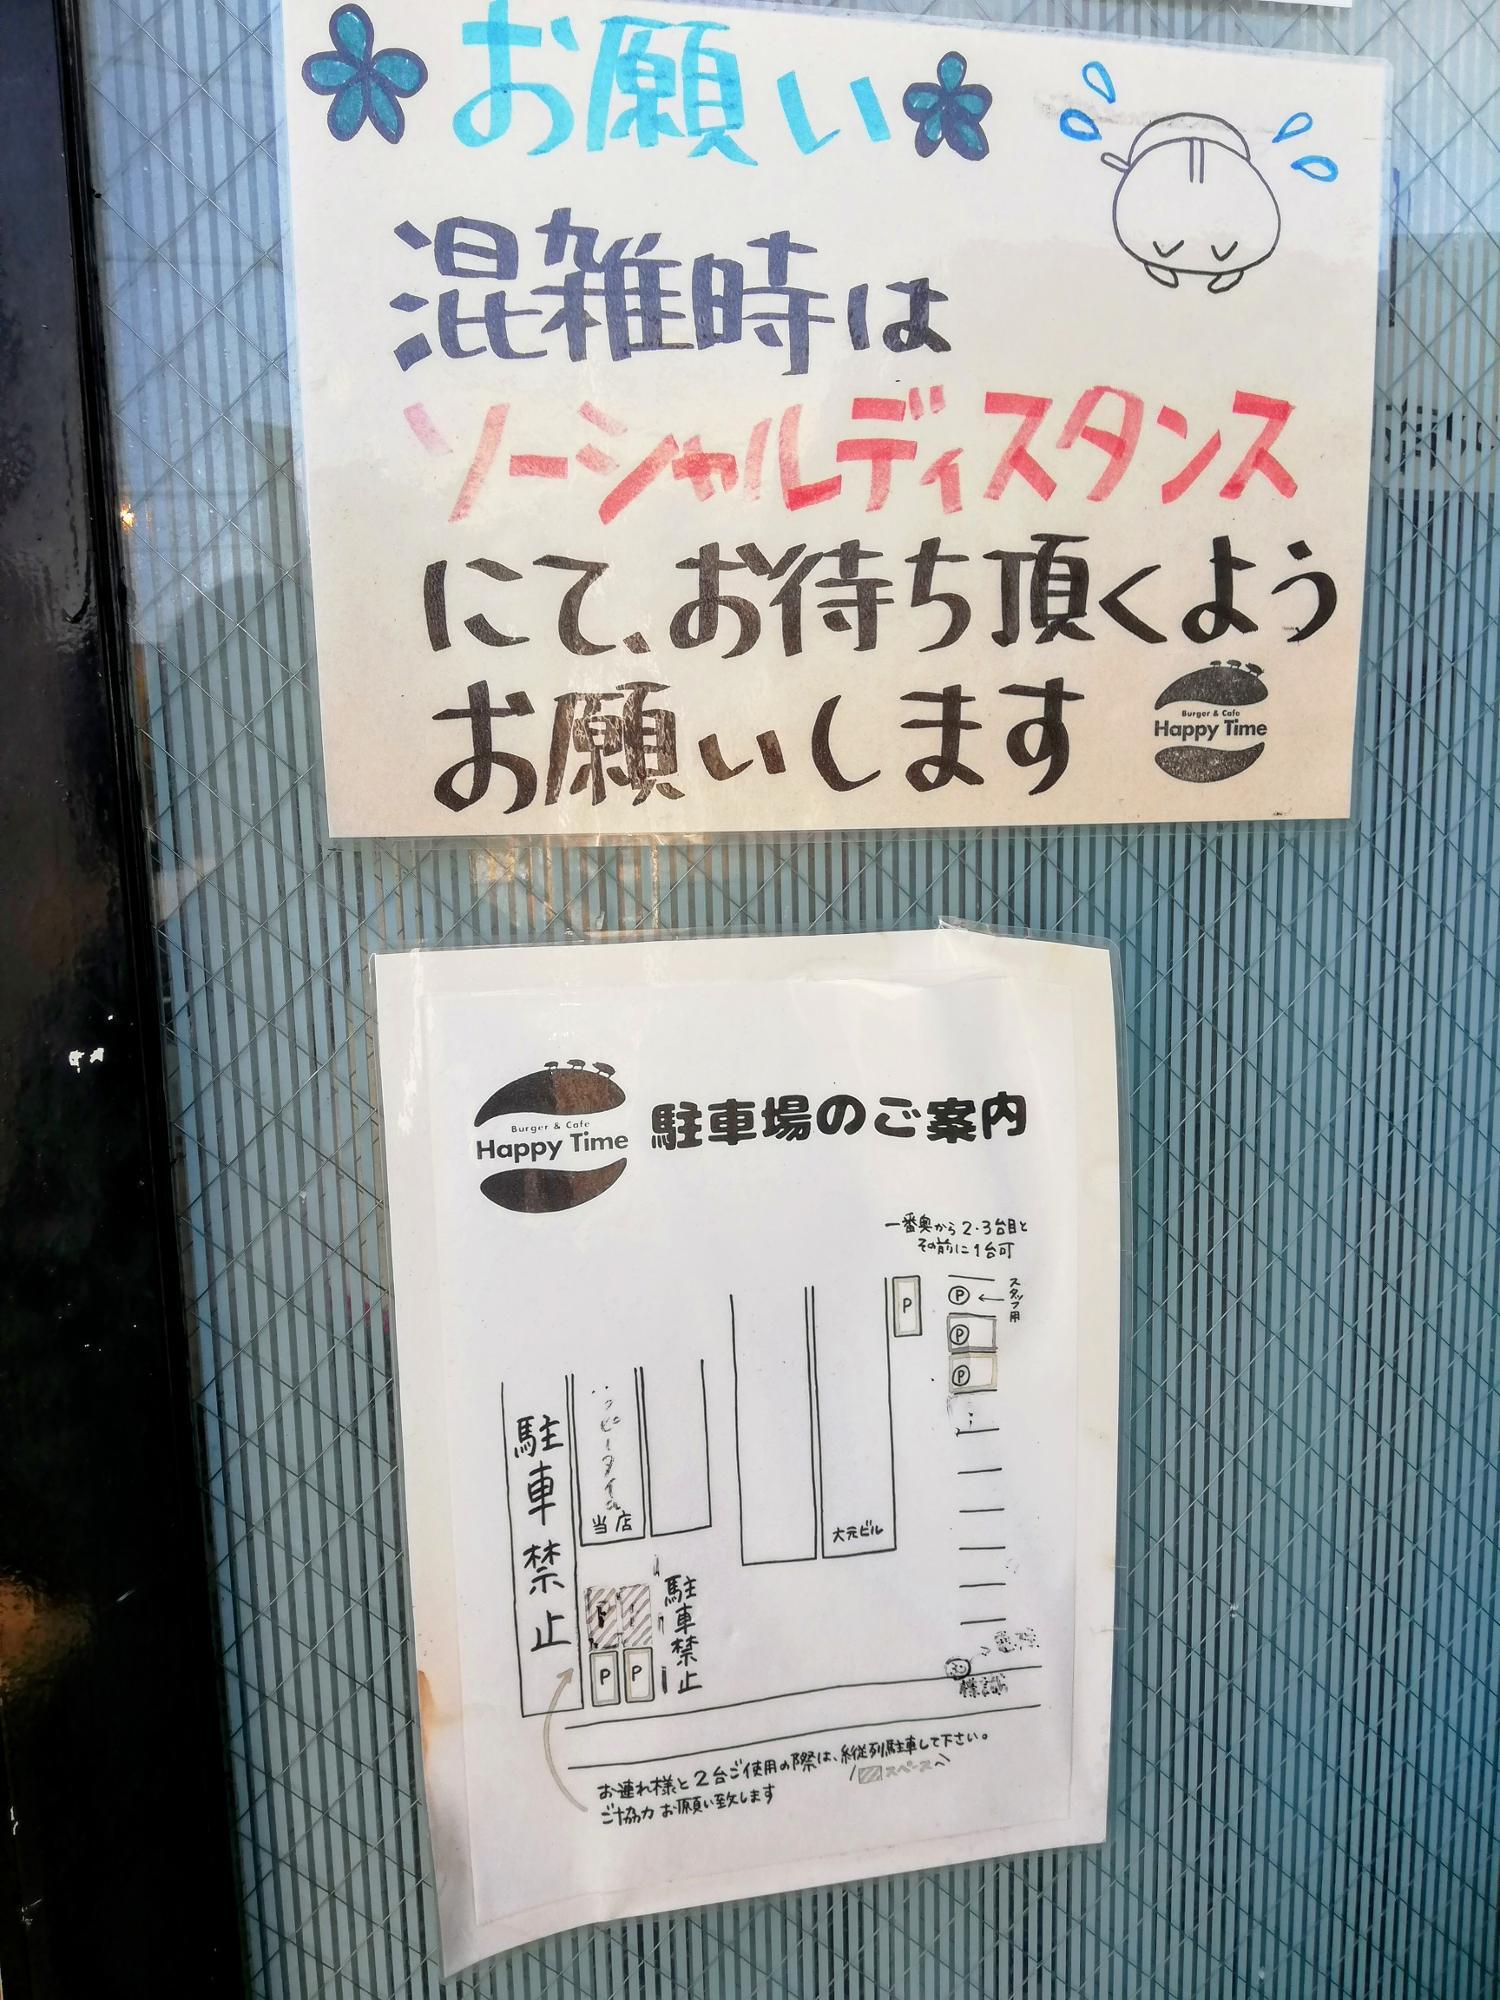 お願い
混雑時は
ソーシャルディスタンス
にて、お待ち頂くよう
お願いします
Burger & Cafe
Happy Time
Burger & Cafe
Happy Time
駐車場のご案内
一番奥から2・3台目と
その前に1台可
P
P
スタッフ用
P
P
駐車禁止
ハッピータイム
当店
大元ビル
駐車禁止
P
P
標識
お連れ様と2台ご使用の際は、縦列駐車して下さい。
スペースへ
ご協力お願い致します